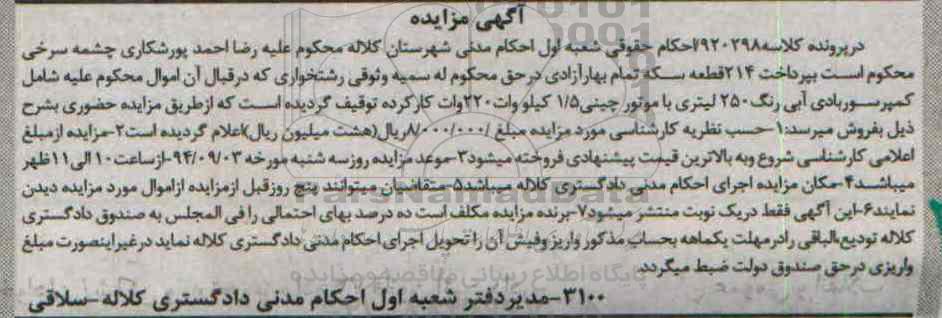 آگهی مزایده
درپرونده کلاسه۹۲۰۲۹۸/احکام حقوقی شعبه اول احکام مدنی شهرستان کلاله محکوم علیه رضا احمد پورشکاری چشمه سرخی
محکوم است بپرداخت ۲۱۴قطعه سکه تمام بهارآزادی درحق محکوم له سمیه وثوقی رشتخواری که درقبال آن اموال محکوم علیه شامل
کمپرسوربادی آبی رنگ ۲۵۰ لیتری با موتور چینی۱/۵ کیلو وات۲۲۰وات کارکرده توقیف گردیده است که ازطریق مزایده حضوری بشرح
ذیل بفروش میرسد:۱-حسب نظریه کارشناسی مورد مزایده مبلغ /۸/۰۰۰/۰۰۰ریال(هشت میلیون ریال)اعلام گردیده است۲-مزایده ازمبلغ
اعلامی کارشناسی شروع وبه بالاترین قیمت پیشنهادی فروخته میشود۳-موعد مزایده روزسه شنبه مورخه ۹۴/۰۹/۰۳-ازساعت۱۰الی۱۱ظهر
میباشد۴-مکان مزایده اجرای احکام مدنی دادگستری کلاله میباشد۵-متقاضیان میتوانند پنج روزقبل ازمزایده ازاموال مورد مزایده دیدن
نمایند۶-این آگهی فقط دریک نوبت منتشر میشود۷-برنده مزایده مکلف است ده درصد بهای احتمالی رافی المجلس به صندوق دادگستری
کلاله تودیع،الباقی رادرمهلت یکماهه بحساب مذکور واریز وفیش آن راتحویل اجرای احکام مدنی دادگستری کلاله نماید درغیراینصورت مبلغ
واریزی درحق صندوق دولت ضبط میگردد.
۳۱۰۰-مدیردفتر شعبه اول احکام مدنی دادگستری کلاله-سلاقی
ParsNamadData
پایگاه اطلاع رسانی مناقصه و مزایده